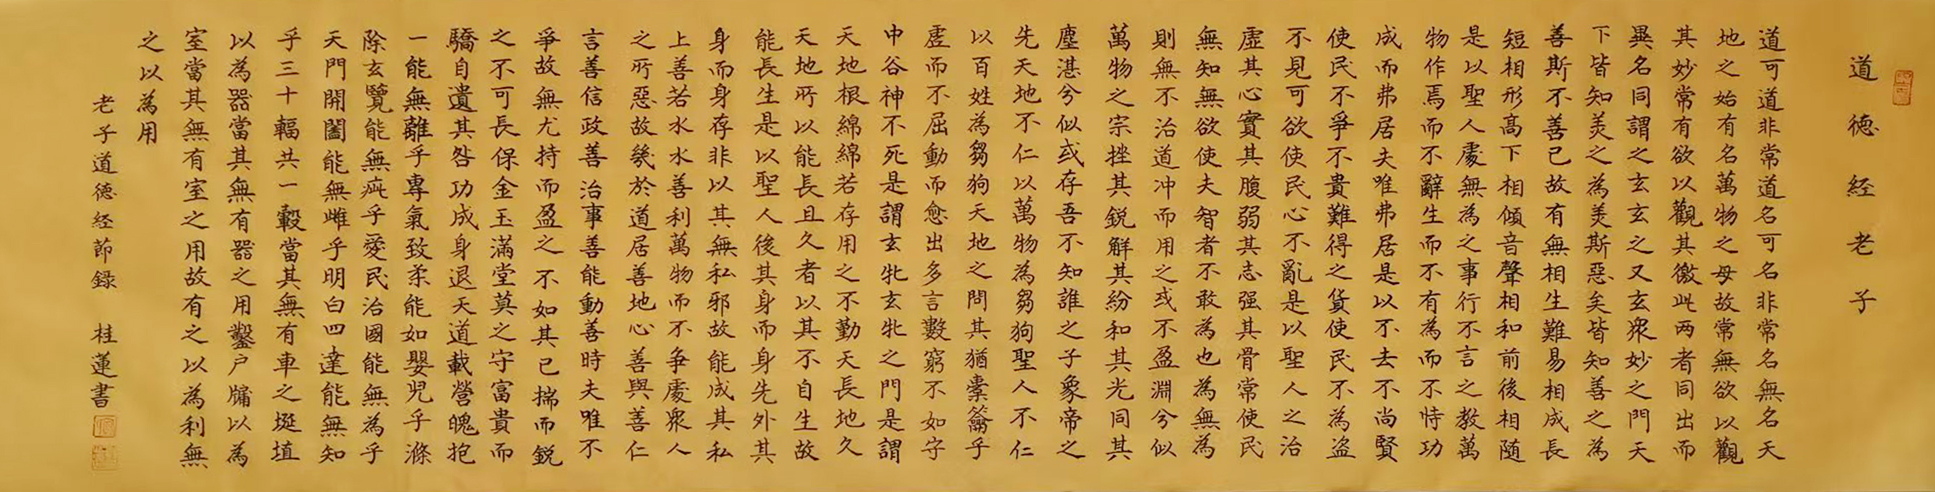 道德经老子
道可道非常道名可名非常名無名天
地之始有名萬物之母故常無欲以觀
其妙常有欲以觀其徼此两者同出而
異名同謂之玄玄之又玄衆妙之門天
下皆知美之為美斯惡矣皆知善之為
善斯不善已故有無相生難易相成長
短相形高下相傾音聲相和前後相随
是以聖人處無為之事行不言之教萬
物作焉而不辭生而不有為而不恃功
成而弗居夫唯弗居是以不去不尚賢
使民不爭不貴難得之貨使民不為盗
不見可欲使民心不亂是以聖人之治
虛其心實其腹弱其志强其骨常使民
無知無欲使夫智者不敢為也為無為
則無不治道冲而用之或不盈淵兮似
萬物之宗挫其銳解其紛和其光同其
塵湛兮似或存吾不知誰之子象帝之
先天地不仁以萬物為芻狗聖人不仁
以百姓為芻狗天地之間其猶橐籥乎
虛而不屈動而愈出多言數窮不如守
中谷神不死是謂玄牝玄牝之門是謂
天地根綿綿若存用之不勤天長地久
天地所以能長且久者以其不自生故
能長生是以聖人後其身而身先外其
身而身存非以其無私邪故能成其私
上善若水水善利萬物而不爭處衆人
之所惡故幾於道居善地心善與善仁
言善信政善治事善能動善時夫唯不
爭故無尤持而盈之不如其已揣而銳
之不可長保金玉滿堂莫之守富貴而
驕自遺其咎功成身退天道載營魄抱
一能無離乎專氣致柔能如嬰兒乎滌
除玄覽能無疵乎愛民治國能無為乎
天門開闔能無雌乎明白四達能無知
乎三十輻共一轂當其無有車之埏埴
以為器當其無有器之用鑿户牖以為
室當其無有室之用故有之以為利無
之以為用
老子道德经節錄 桂蓮書